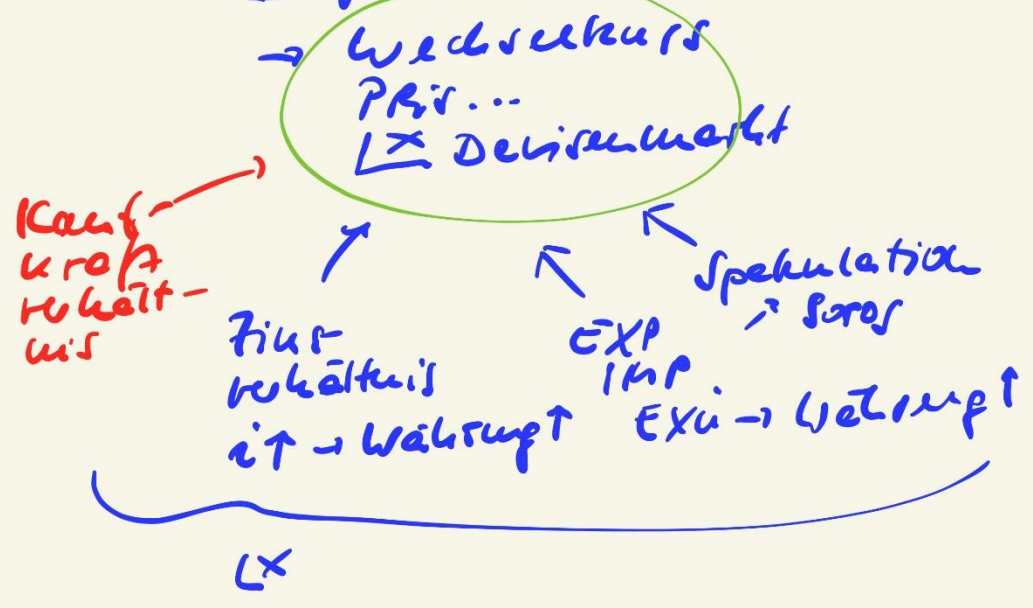 → Wechselkurs
Preis...
Devisenmarkt
Kauf-
kraft
verhält-
nis
Zins-
verhältnis
i↑ → Währung↑
EXP
IMP
EXü → Währung↑
Spekulation
↗ Soros